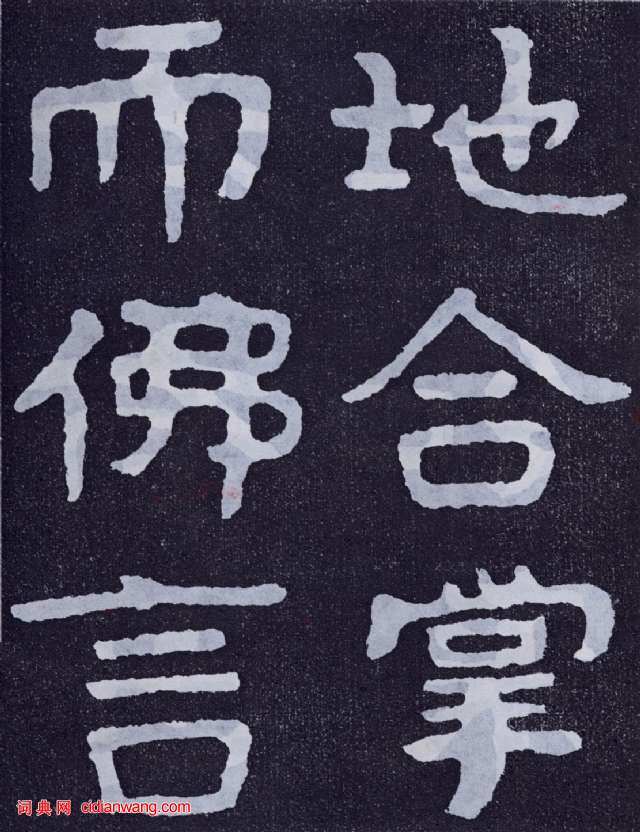 地合掌
而佛言
词典网 cidianwang.com